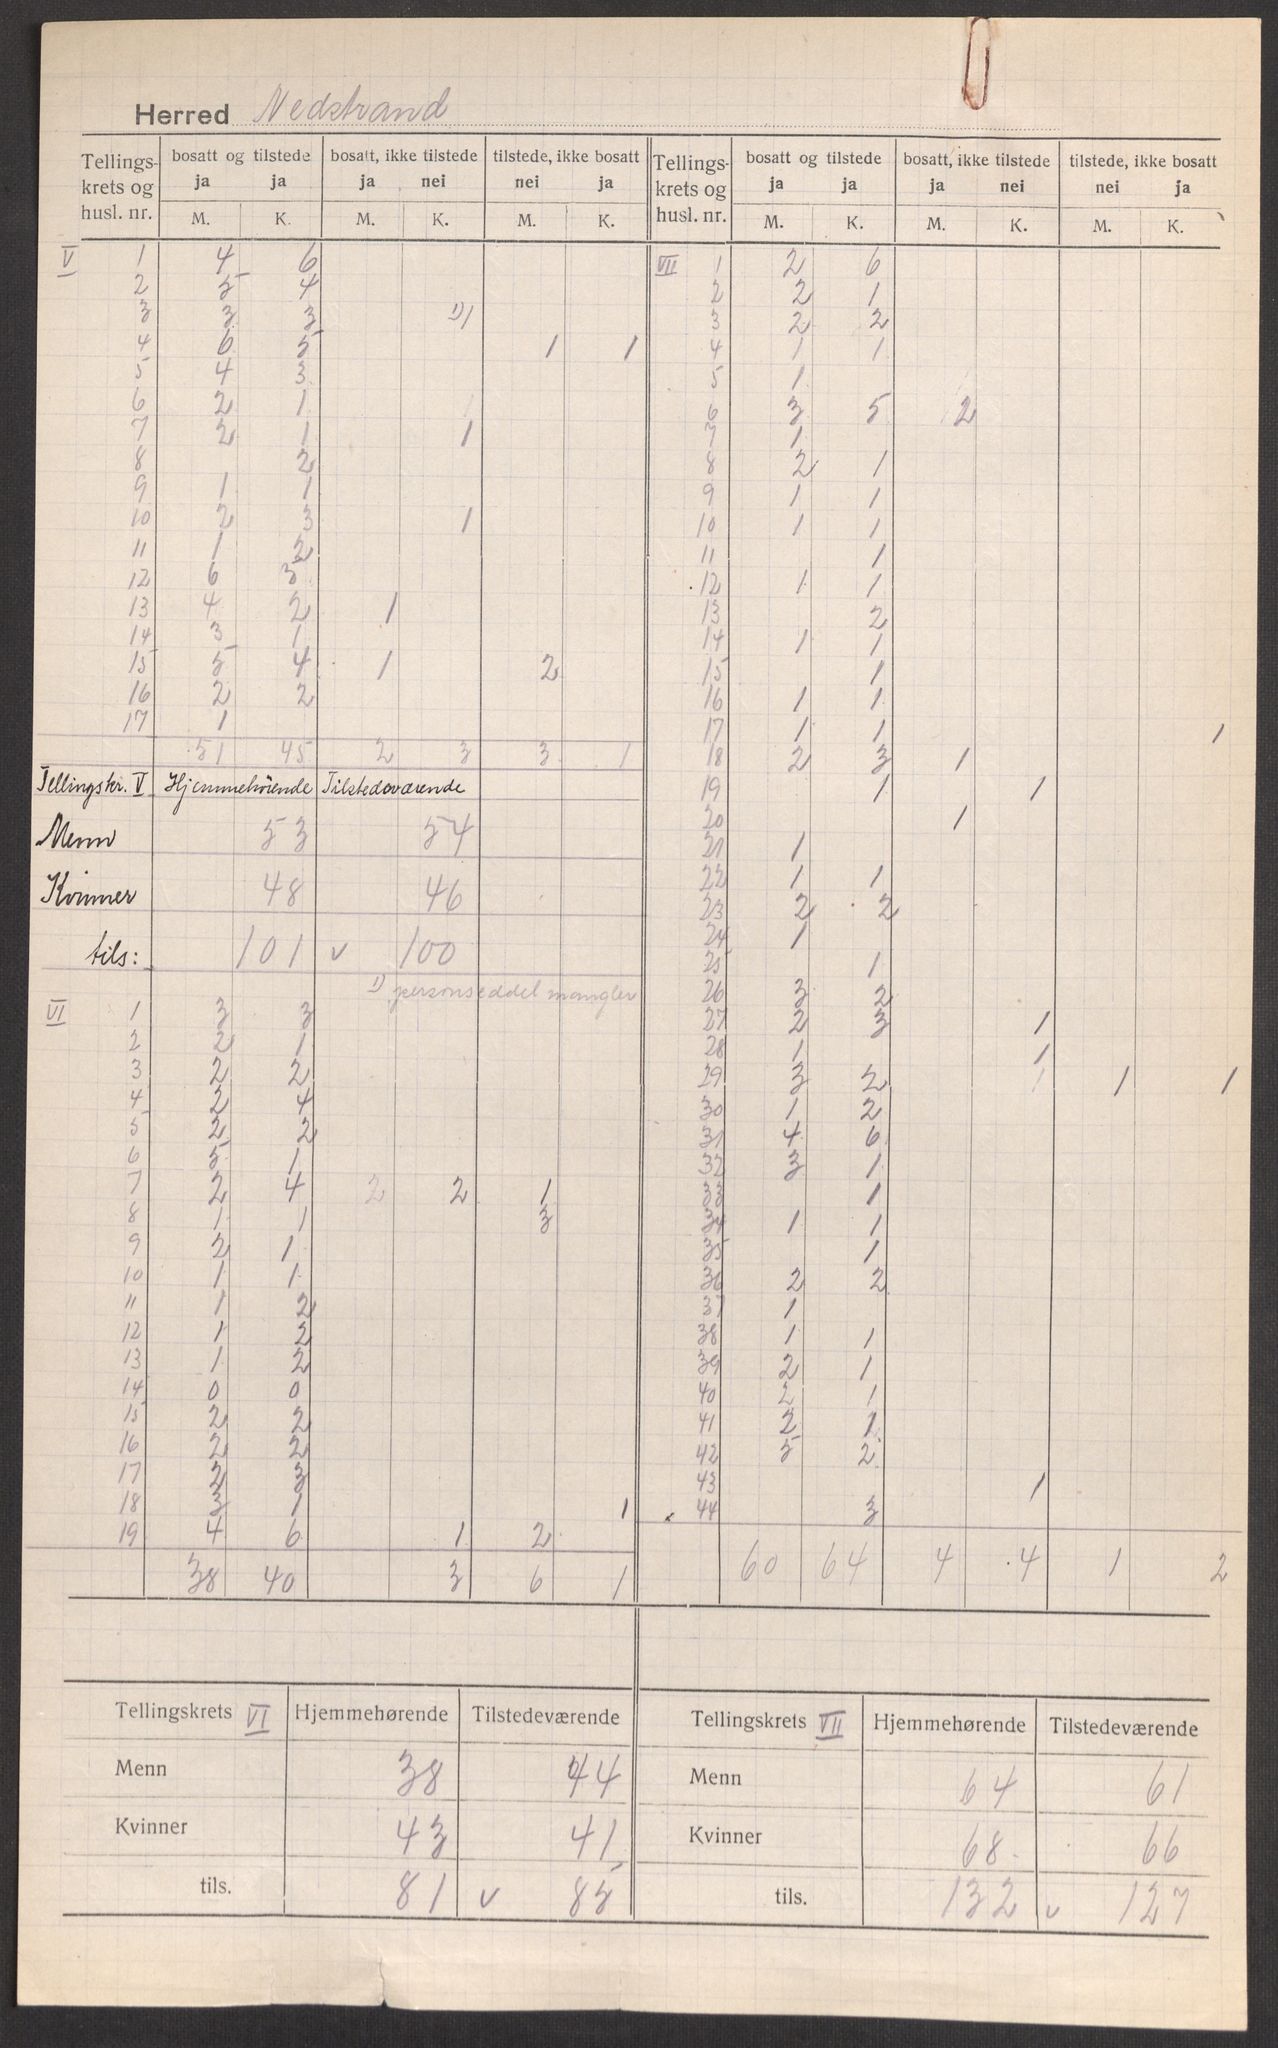 Herred Nedstrand
Tellings-krets og husl. nr. | bosatt og tilstede ja ja M. K. | bosatt, ikke tilstede ja nei M. K. | tilstede, ikke bosatt nei ja M. K.
V 1 4 6
2 5 4
3 3 3 1) 1
4 6 5 1 1
5 4 3
6 2 1
7 2 1 1
8 2
9 1 1
10 2 3 1
11 1 2
12 6 5
13 4 2 1
14 3 1
15 5 4 1 2
16 2 2
17 1
51 45 2 3 3 1
Tellingskr. V Hjemmehørende Tilstedeværende
Menn 53 54
Kvinner 48 46
tils: 101 v 100
1) personseddel mangler
VI 1 3 3
2 2 1
3 2 2
4 2 4
5 2 2
6 5 1
7 2 4 2 2 1
8 1 1 3
9 2 1
10 1 1
11 1 2
12 1 2
13 1 2
14 0 0
15 2 2
16 2 2
17 2 3
18 3 1 1
19 4 6 1 2
38 40 3 6 1
Tellingskrets VI Hjemmehørende Tilstedeværende
Menn 38 44
Kvinner 43 41
tils. 81 v 85
Tellings-krets og husl. nr. | bosatt og tilstede ja ja M. K. | bosatt, ikke tilstede ja nei M. K. | tilstede, ikke bosatt nei ja M. K.
VII 1 2 6
2 2 1
3 2 2
4 1 1
5 1
6 3 5 2
7 1
8 2 1
9 1 1
10 1 1
11 1
12 1 1
13 2
14 1 1
15 1
16 1 1
17 1 1 1
18 2 3 1
19 1 1
20 1
21 1
22 1 1
23 2 2
24 1
25 1
26 3 2
27 2 3 1
28 1 1
29 3 2 1 1 1
30 1 2
31 4 6
32 3 1
33 1
34 1 1
35 1
36 2 2
37 1
38 1 1
39 2 1
40 2 1
41 2 1
42 5 2
43 1
44 3
60 64 4 4 1 2
Tellingskrets VII Hjemmehørende Tilstedeværende
Menn 64 61
Kvinner 68 66
tils. 132 v 127